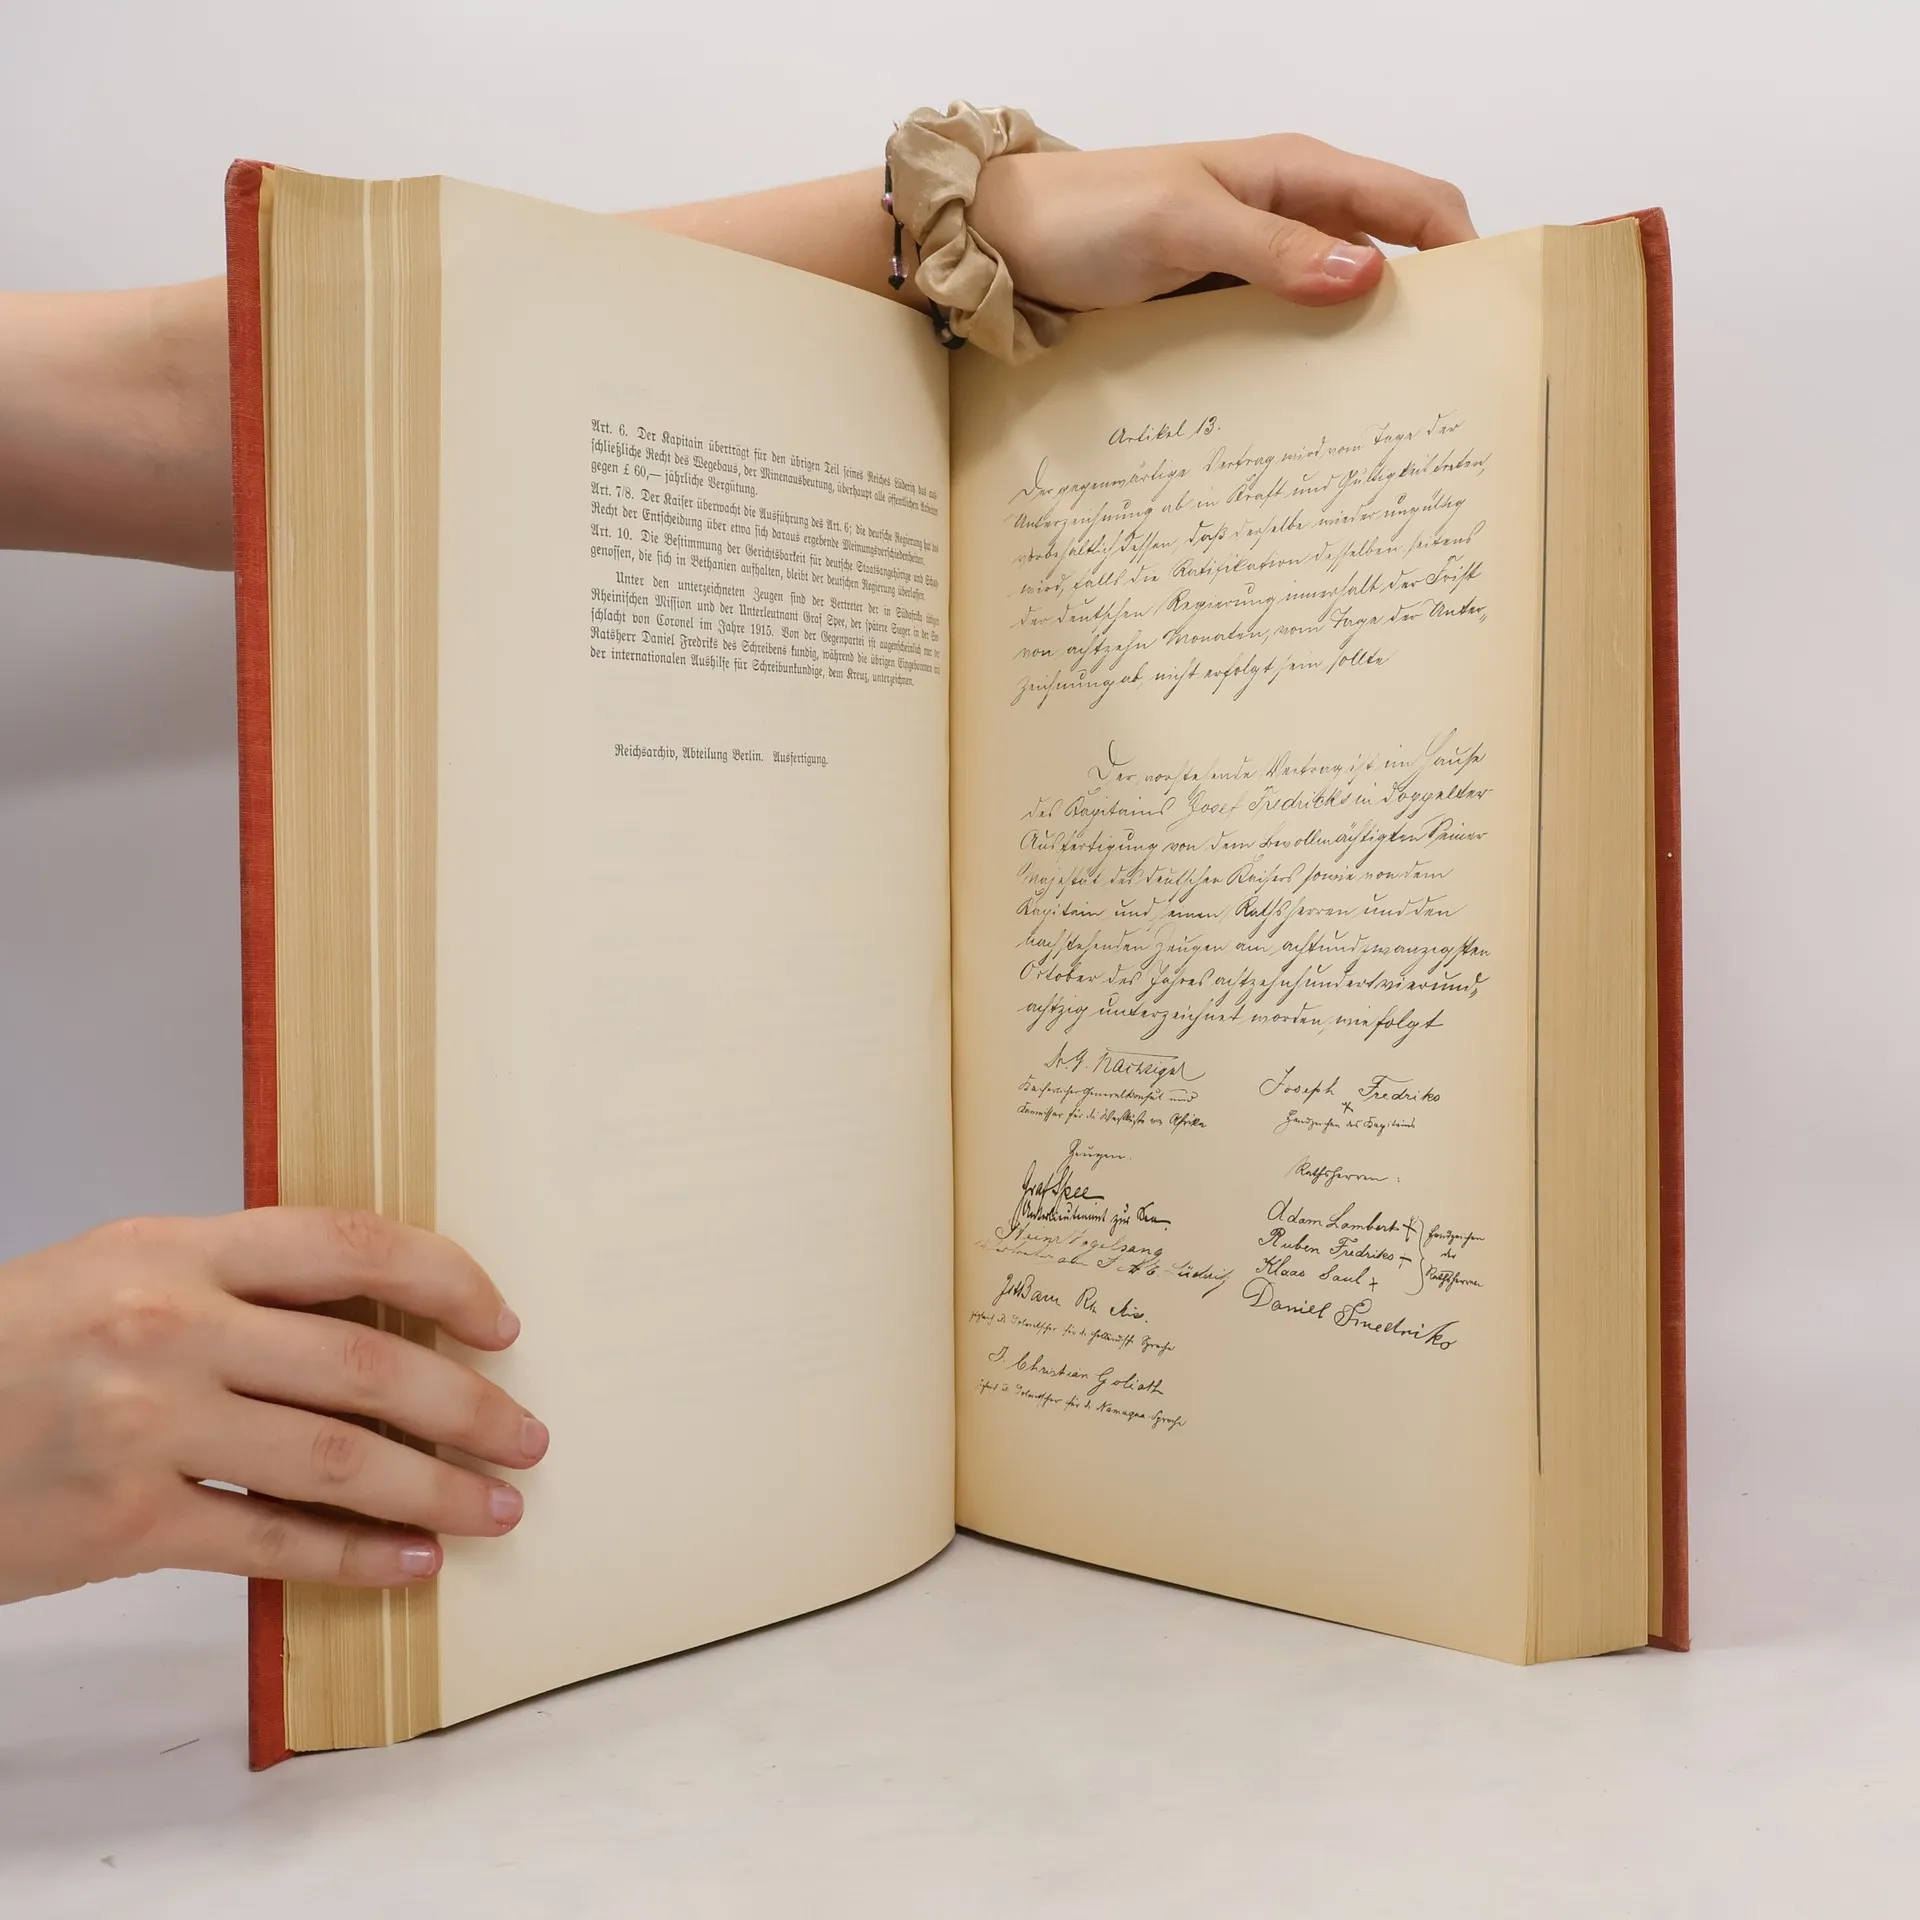 Art. 6. Der Kapitain überträgt für den übrigen Teil seines Reiches Lüderitz das aus-
schließliche Recht des Wegebaus, der Minenausbeutung, überhaupt alle öffentlichen Arbeiten
gegen £ 60,— jährliche Vergütung.
Art. 7/8. Der Kaiser überwacht die Ausführung des Art. 6; die deutsche Regierung hat das
Recht der Entscheidung über etwa sich daraus ergebende Meinungsverschiedenheiten.
Art. 10. Die Bestimmung der Gerichtsbarkeit für deutsche Staatsangehörige und Schutz-
genossen, die sich in Bethanien aufhalten, bleibt der deutschen Regierung überlassen.
Unter den unterzeichneten Zeugen sind der Vertreter der in Südafrika tätigen
Rheinischen Mission und der Unterleutnant Graf Spee, der spätere Sieger in der See-
schlacht von Coronel im Jahre 1915. Von der Gegenpartei ist augenscheinlich nur der
Ratsherr Daniel Fredriks des Schreibens kundig, während die übrigen Eingeborenen mit
der internationalen Aushilfe für Schreibunkundige, dem Kreuz, unterzeichnen.
Reichsarchiv, Abteilung Berlin. Ausfertigung.
Artikel 13.
Der gegenwärtige Vertrag wird vom Tage der
Unterzeichnung ab in Kraft und Gültigkeit treten,
vorbehaltlich dessen, daß derselbe wieder ungültig
wird, falls die Ratifikation desselben seitens
der deutschen Regierung innerhalb der Frist
von achtzehn Monaten, vom Tage der Unter-
zeichnung ab, nicht erfolgt sein sollte
Der vorstehende Vertrag ist im Hause
des Kapitains Josef Fredricks in doppelter
Ausfertigung von dem Bevollmächtigten Seiner
Majestät des deutschen Kaisers sowie von dem
Kapitain und seinen Rathsherren und den
nachstehenden Zeugen am achtundzwanzigsten
October des Jahres achtzehnhundertvierund-
achtzig unterzeichnet worden, wie folgt
Dr. G. Nachtigal
Kaiserlicher Generalkonsul und
Kommissar für die Westküste von Afrika
Joseph Fredriks
Handzeichen des Kapitains
Zeugen.
Graf Spee
Unterlieutenant zur See
Heinr Vogelsang
Vertreter von F A E Lüderitz
Joh Bam Rh. Miss.
zugleich als Dolmetscher für die holländische Sprache
J. Christian Goliath
zugleich als Dolmetscher für die Namaqua-Sprache
Rathsherren:
Adam Lambert
Ruben Fredriks
Klaas Saul
Daniel Fredriks
Handzeichen
der
Rathsherren